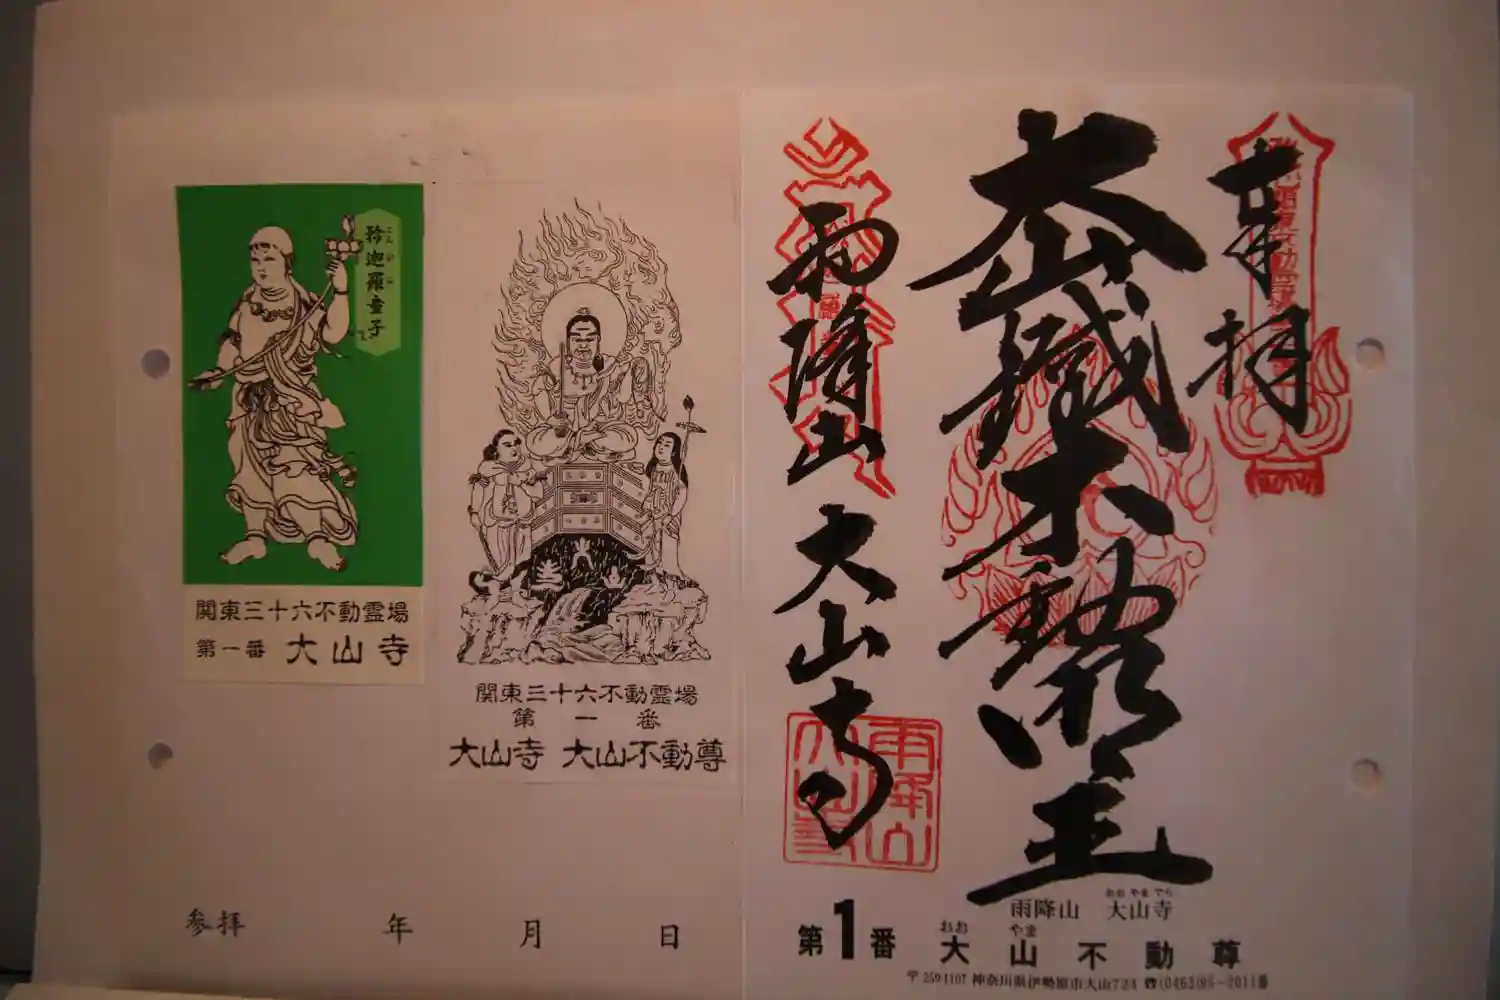 奉拝
大山鐵不動明王
雨降山 大山寺
雨降山
大山寺
おおやまでら
雨降山 大山寺
おお やま
第1番 大山不動尊
〒259-1107 神奈川県伊勢原市大山724 ☎(0463)95-2011番
こんがら
矜迦羅童子
関東三十六不動霊場
第一番 大山寺
関東三十六不動霊場
第一番
大山寺 大山不動尊
参拝 年 月 日